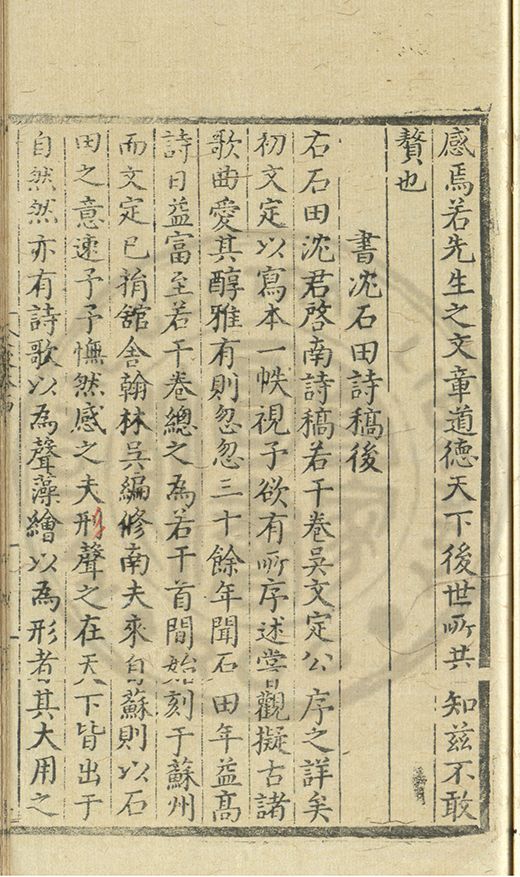 感焉若先生之文章道德天下後世所共知兹不敢
贅也
書沈石田詩稿後
右石田沈君啓南詩稿若干卷吳文定公序之詳矣
初文定以寫本一帙視予欲有所序述嘗觀擬古諸
歌曲愛其醇雅有則忽忽三十餘年聞石田年益高
詩日益富至若干卷總之為若干首間始刻于蘇州
而文定已捐舘舍翰林吳編修南夫來自蘇則以石
田之意速予予憮然感之夫形聲之在天下皆出于
自然然亦有詩歌以為聲藻繪以為形者其大用之